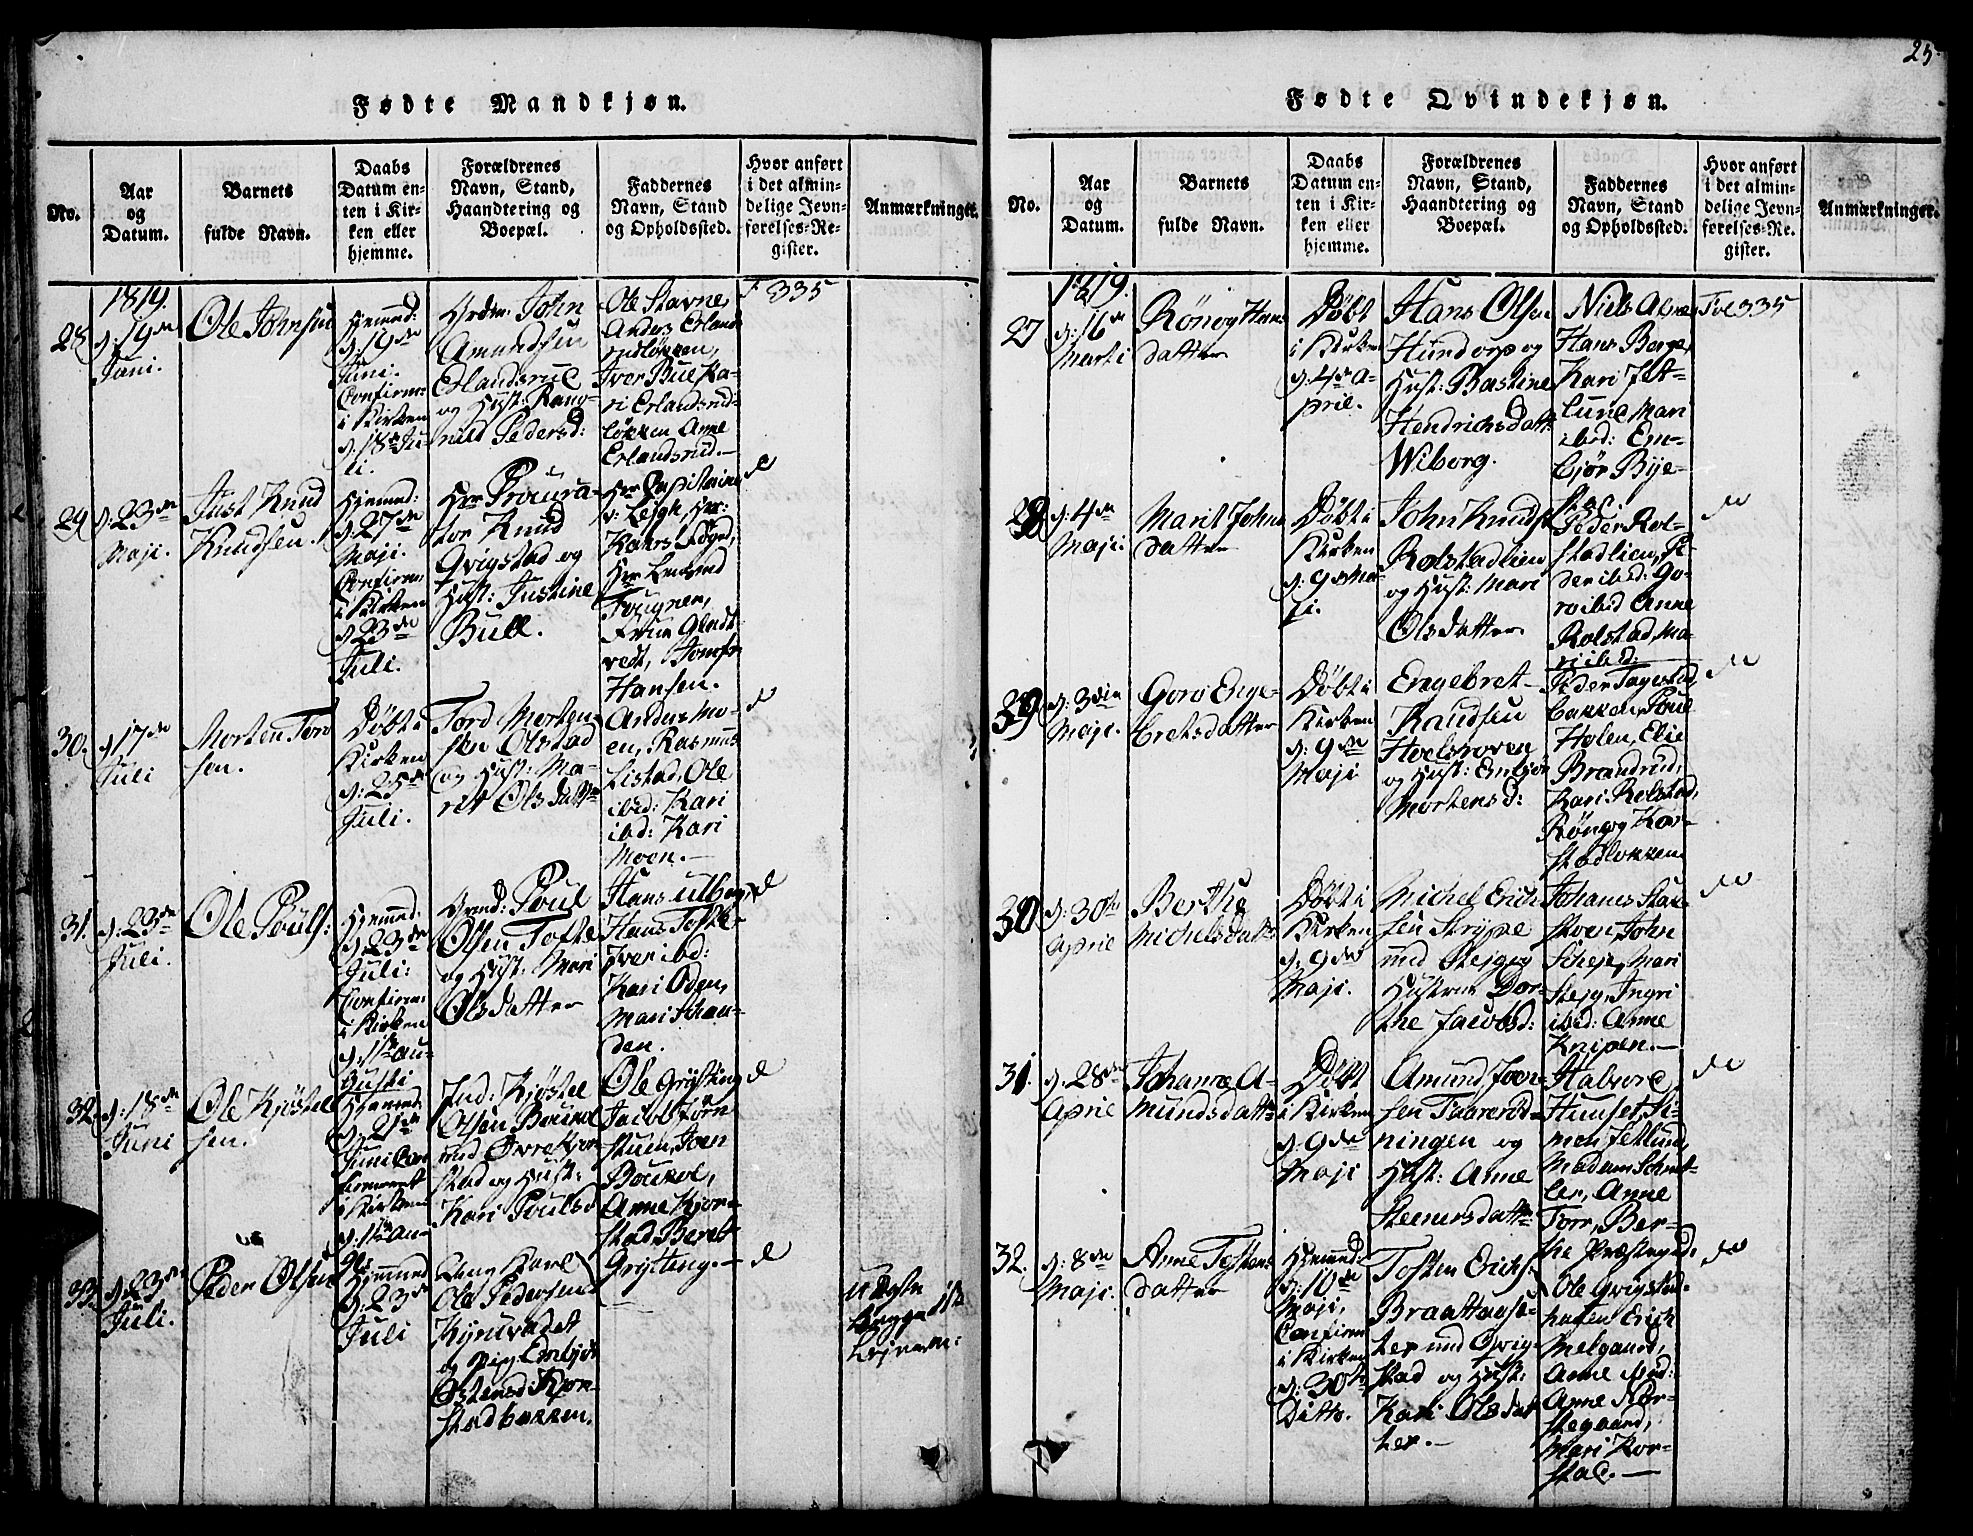 25.
Fødte Mandkjøn.
No.
Aar
og
Datum.
Barnets
fulde Navn.
Daabs
Datum en-
ten i Kir-
ken eller
hjemme.
Forældrenes
Navn, Stand,
Haandtering og
Boepæl.
Faddernes
Navn, Stand
og Opholdssted.
Hvor anført
i det almin-
delige Jevn-
førelses-Re-
gister.
Anmærkninger.
1819.
28
d: 19de
Juni.
Ole Johnsen
Hjemmed:
d: 19de
Juni.
Confirm:
i Kirken
d: 18de Ju-
li.
John
Amundsen
Erlandsrud
og Hust: Rang-
nild Pedersd:
Ole Stavne,
Anders Erlands
rudløkken,
Iver Bue, Ka-
ri Erlandsrud-
løkken Anne
Erlandsrud.
F 335
29
d: 23de
Maji.
Just Knud
Knudsen.
Hjemmed:
d: 27de
Maji.
Confirm:
i Kirken
d 23de
Juli.
Hrr Procura-
tor Knud
Qvigstad og
Hust: Justine
Bull.
Hrr Capitaine
v: Leigh, Hrr:
Hrr
Fougner,
Frue
vedt, Jomfr
Hansen.
d
30.
d 17de
Juli
Morten Tord
sen.
Døbt i
Kirken
d: 25de
Juli.
Tord Morten
sen Olstad
og Hust: Ma-
rit Olsdatter
Anders Mo-
en, Rasmus
Listad, Ole
ibid: Kari
ibd: Kari
Moen.
d
31.
d: 23de
Juli.
Ole Pouls:
Hjemmed:
d: 23de
Juli:
Confirm:
i Kirken
d: 1ste Au-
gusti
Poul
Olsen Tofte
og Hust: Mari
Olsdatter
Hans Ulberg,
Hans Tofte
Iver ibd:
Kari Oden,
Mari
den.
d
32.
d: 18de
Juni
Ole Kjøstel
sen.
Hjemmed
d: 21de
Juni Con
firmeret
i Kirken
d: 1ste Au-
gti
Ind: Kjøstel
Olsen
und Øvre Kjør
stad og Hust:
Kari Poulsd
Ole Grytting
Jacob Jørn
stuen, Joen
Anne Kjøre-
stad, Beret
Grytting.
d
33.
d: 23de
Juli.
Peder Olsen
Hjemmed
d: 23de
Juli
Ung Karl
Ole Pedersen
og Pige Embjør
Østensd: Kjør-
stadbakken.
Uægte
begge 1ste
Lejerm:
Fødte Qvindekjøn.
No.
Aar
og
Datum.
Barnets
fulde Navn.
Daabs
Datum en-
ten i Kir-
ken eller
hjemme.
Forældrenes
Navn, Stand,
Haandtering og
Boepæl.
Faddernes
Navn, Stand
og Opholdssted.
Hvor anført
i det almin-
delige Jevn-
førelses-Re-
gister.
Anmærkninger.
1819.
27
d: 16de
Marti
Rønog Hans
datter
Døbt
i Kirken
d: 4de A-
pril.
Hans Olsen
Hundorp og
Hust: Bastine
Hendrichsdatt:
Wiborg.
Niels
Hans Berge,
Kari Jet-
lund Mari
ibd: Em-
bjør Bye-
Fol 335
28
d: 4de
Maji:
Marit Johns
datter
Døbt i
Kirken
d: 9de Ma-
ji.
John Knuds:
Rolstadlien
og Hust: Mari
Olsdatter
Peder Rol-
stadlien, Pe-
der ibid: Go-
ro ibid Anne
Rolstad, Ma-
ri ibid:
do
29
d: 3die
Maji.
Goro Enge-
bretsdatter
Døbt i
Kirken
d: 9de
Maji
Engebret
Knudsen
og Hust: Embjør
Mortensd:
Peder
bakken, Poul
Holen, Elie
Brandrud,
Kari Rolstad,
Rønnog Kor-
stadløkken
do
30
d: 30te
April
Berthe
Michelsdatt:
Døbt i
Kirken
d: 9de
Maji.
Michel Erich
sen Strype
und Stejg og
Hustrue Dor-
the Jacobsd:
Johannes
John
Mari
Stejg, Ingri
ibid: Anne
Knipen.
do
31.
d. 28de
April
Johanne A-
mundsdatt:
Døbt
i Kirken
d: 9de
Maji
Amund Joen-
sen
ningen og
Hust: Anne
Steenersdatter
Halvor
Si-
men Jetlund,
Madam
ler, Anne
Torr, Ber-
the Præstegrd:
do
32.
d: 8de
Maji.
Anne Tostens
datter
Hjemmed:
d: 10de
Maji,
Confirm:
i Kirken
d: 30te
Ditto.
Tosten Erichs:
Braathause-
ter und Qvig-
stad og Hust:
Kari Olsdat
ter.
Ole Qvigstad-
hagen Erich
Melgaard,
Anne ibid:
Anne Kor-
stegaard,
Mari Kor-
stad.
do